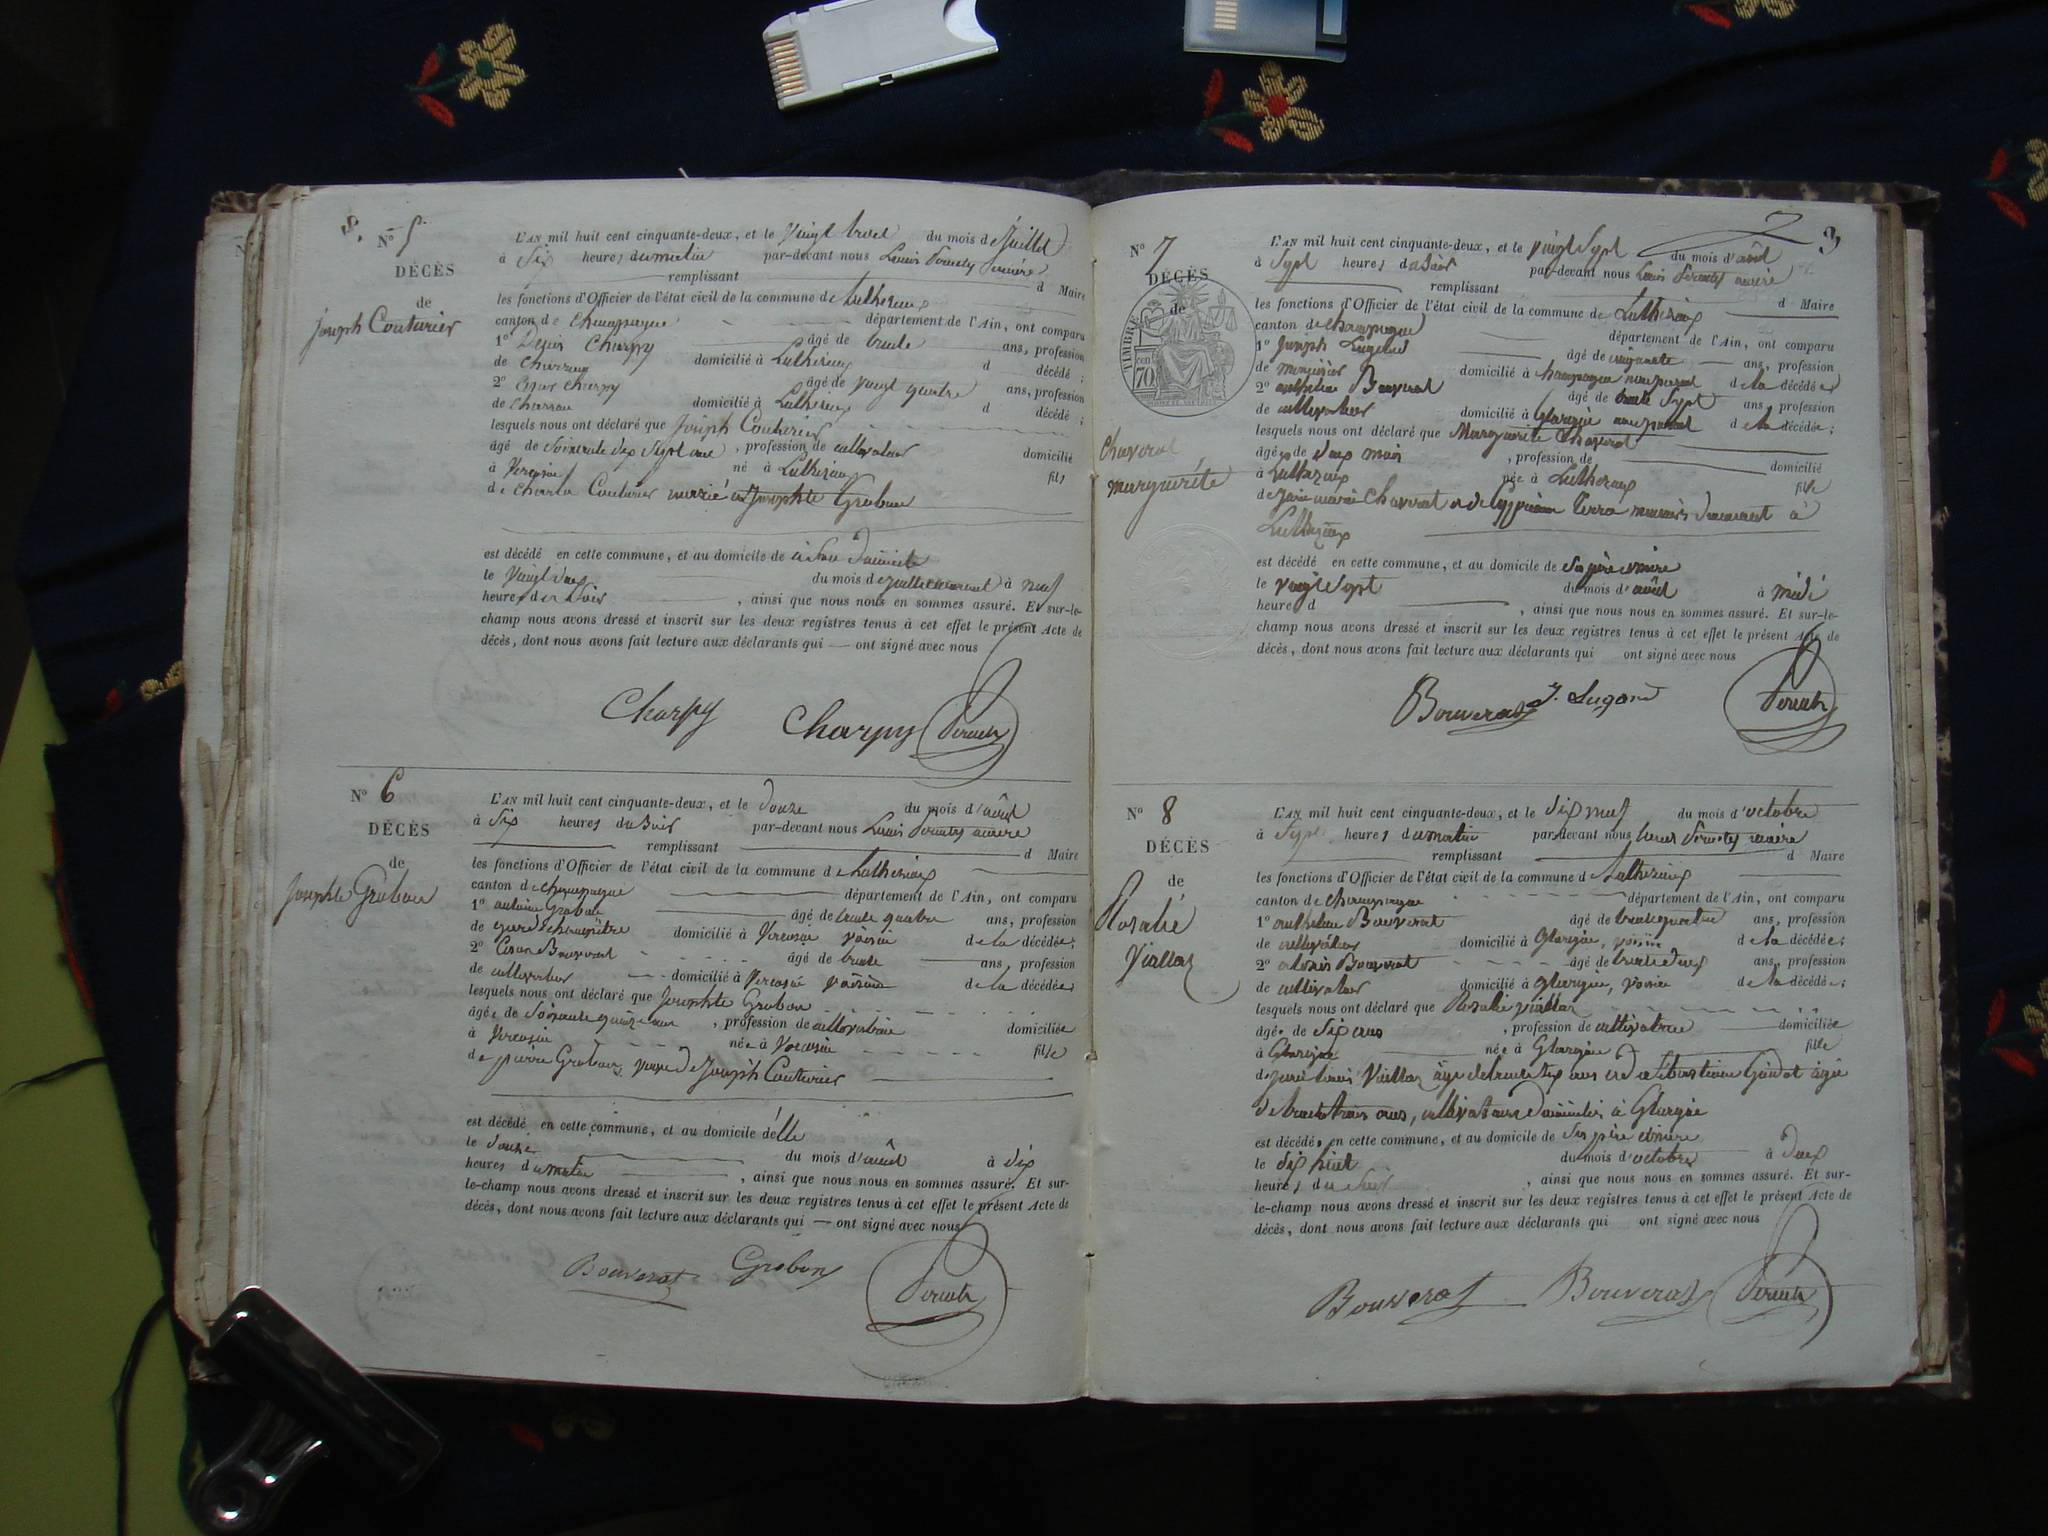 N° 5
DÉCÈS
de
Joseph Couturier
L'AN mil huit cent cinquante-deux, et le vingt trois du mois de Juillet
à Six heures du matin par-devant nous Louis maire
remplissant d Maire
les fonctions d'Officier de l'état civil de la commune de Luthezieux
canton de champagne département de l'Ain, ont comparu
1° Charpy âgé de trente ans, profession
de domicilié à Luthezieux d décédé ;
2° charpy âgé de vingt quatre ans, profession
de charron domicilié à Luthezieux d décédé ;
lesquels nous ont déclaré que Joseph Couturier
âgé de Soixante dix Sept ans , profession de cultivateur domicilié
à Vercosin né à Luthezieux fils
de Couturier marié à Josephte Grobon
est décédé en cette commune, et au domicile de à Son domicile
le vingt deux du mois de juillet courant à neuf
heures du Soir , ainsi que nous nous en sommes assuré. Et sur-le-
champ nous avons dressé et inscrit sur les deux registres tenus à cet effet le présent Acte de
décès, dont nous avons fait lecture aux déclarants qui — ont signé avec nous
Charpy Charpy
N° 6
DÉCÈS
de
Josephte Grobon
L'AN mil huit cent cinquante-deux, et le douze du mois d'août
à Six heures du Soir par-devant nous Louis maire
remplissant d Maire
les fonctions d'Officier de l'état civil de la commune de Luthezieux
canton de champagne département de l'Ain, ont comparu
1° antoine Grobon âgé de trente quatre ans, profession
de garde champêtre domicilié à Vercosin voisin de la décédée ;
2° Bouverat âgé de trente ans, profession
de cultivateur domicilié à Vercosin voisin de la décédée ;
lesquels nous ont déclaré que Josephte Grobon
âgée de Soixante quinze ans , profession de cultivatrice domiciliée
à Vercosin née à Vercosin fille
de pierre Grobon, veuve de Joseph Couturier
est décédé en cette commune, et au domicile d'elle
le douze du mois d'août à dix
heures du matin , ainsi que nous nous en sommes assuré. Et sur-
le-champ nous avons dressé et inscrit sur les deux registres tenus à cet effet le présent Acte de
décès, dont nous avons fait lecture aux déclarants qui — ont signé avec nous
Bouverat Grobon
3
N° 7
DÉCÈS
de
TIMBRE
70
chaverot
marguerite
L'AN mil huit cent cinquante-deux, et le vingt Sept du mois d'août
à Sept heures du Soir par-devant nous Louis maire
remplissant d Maire
les fonctions d'Officier de l'état civil de la commune de Luthezieux
canton de champagne département de l'Ain, ont comparu
1° Joseph Lugand âgé de cinquante ans, profession
de menuisier domicilié à champagne non parent de la décédée
2° anthelme Bouverat âgé de trente Sept ans, profession
de cultivateur domicilié à Glargin non parent de la décédée ;
lesquels nous ont déclaré que Marguerite Chaverot
âgée de deux mois , profession de domicilié
à Luthezieux née à Luthezieux fille
de Jean marie Chaverot et de Terra mariés demeurant à
Luthezieux
est décédé en cette commune, et au domicile de Ses père et mère
le vingt Sept du mois d'août à midi
heure d , ainsi que nous nous en sommes assuré. Et sur-le-
champ nous avons dressé et inscrit sur les deux registres tenus à cet effet le présent Acte de
décès, dont nous avons fait lecture aux déclarants qui ont signé avec nous
Bouverat J. Lugand
N° 8
DÉCÈS
de
Rosalie
Viallaz
L'AN mil huit cent cinquante-deux, et le dix neuf du mois d'octobre
à Sept heures du matin par-devant nous Louis maire
remplissant d Maire
les fonctions d'Officier de l'état civil de la commune de Luthezieux
canton de champagne département de l'Ain, ont comparu
1° anthelme Bouverat âgé de trente quatre ans, profession
de cultivateur domicilié à Glargin, voisin de la décédée ;
2° Bouverat âgé de trente deux ans, profession
de cultivateur domicilié à Glargin, voisin de la décédée ;
lesquels nous ont déclaré que Rosalie Viallaz
âgée de Six ans , profession de cultivatrice domiciliée
à Glargin née à Glargin fille
de Louis Viallaz âgé de trente Six ans et de Guidot âgée
de trente trois ans, cultivateurs domiciliés à Glargin
est décédée en cette commune, et au domicile de Ses père et mère
le dix huit du mois d'octobre à deux
heures du Soir , ainsi que nous nous en sommes assuré. Et sur-
le-champ nous avons dressé et inscrit sur les deux registres tenus à cet effet le présent Acte de
décès, dont nous avons fait lecture aux déclarants qui ont signé avec nous
Bouverat Bouverat